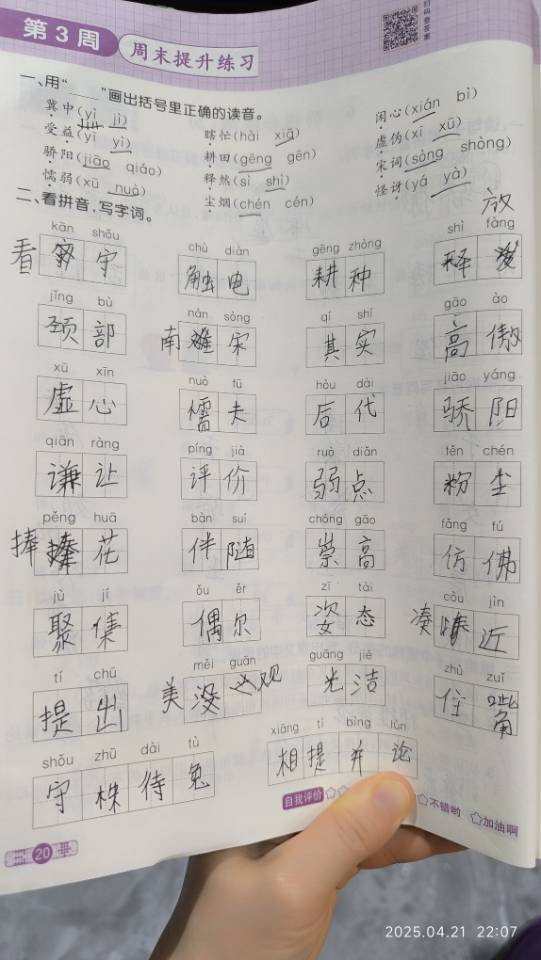 第3周 周末提升练习
扫码查答案
一、用“____”画出括号里正确的读音。
冀中(yì jì) 瞎忙(hāi xiā) 闲心(xián bì)
受益(yī yì) 耕田(gēng gēn) 虚伪(xī xū)
骄阳(jiāo qiáo) 释然(sì shì) 宋词(sòng shòng)
懦弱(xū nuò) 尘烟(chén cén) 怪讶(yá yà)
二、看拼音，写字词。
放
kān shǒu chù diàn gēng zhòng shì fàng
看 守 触电 耕种 释
jǐng bù nán sòng qí shí gāo ào
颈部 南 宋 其实 高傲
xū xīn nuò fū hòu dài jiāo yáng
虚心 儒夫 后代 骄阳
qiān ràng píng jià ruò diǎn fěn chén
谦让 评价 弱点 粉尘
pěng huā bàn suí chóng gāo fǎng fú
捧 花 伴随 崇高 仿佛
jù jí ǒu ěr zī tài còu jìn
聚集 偶尔 姿态 凑 近
tí chū měi guān guāng jié zhù zuǐ
提出 美 没 观 光洁 住嘴
shǒu zhū dài tù xiāng tí bìng lùn
守株待兔 相提并论
自我评价 不错哟 加油啊
20
2025.04.21 22:07